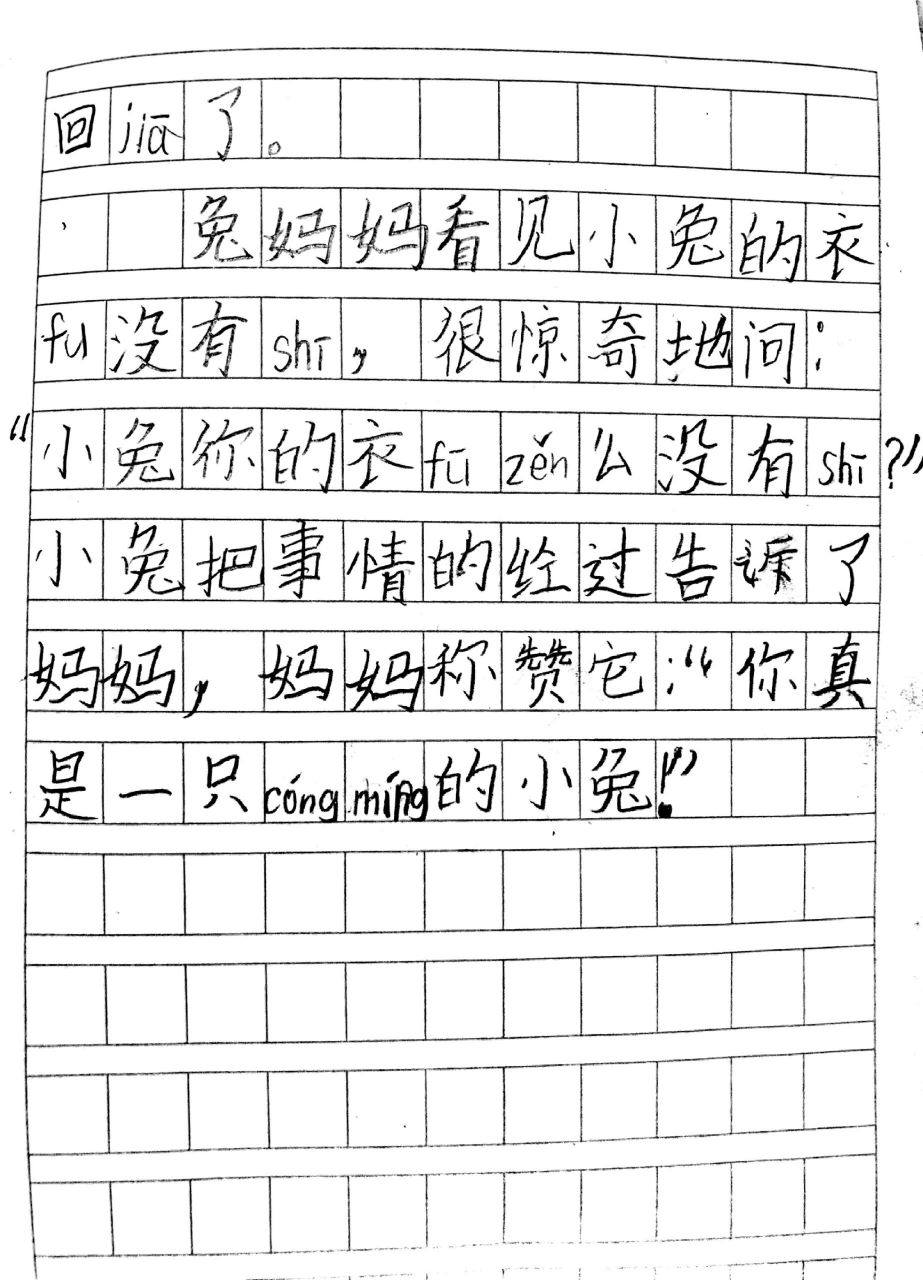 回jiā了。
兔妈妈看见小兔的衣
fu没有shī，很惊奇地问：
“小兔你的衣fū zěn么没有shī？”
小兔把事情的经过告诉了
妈妈，妈妈称赞它：“你真
是一只cóng míng的小兔！”